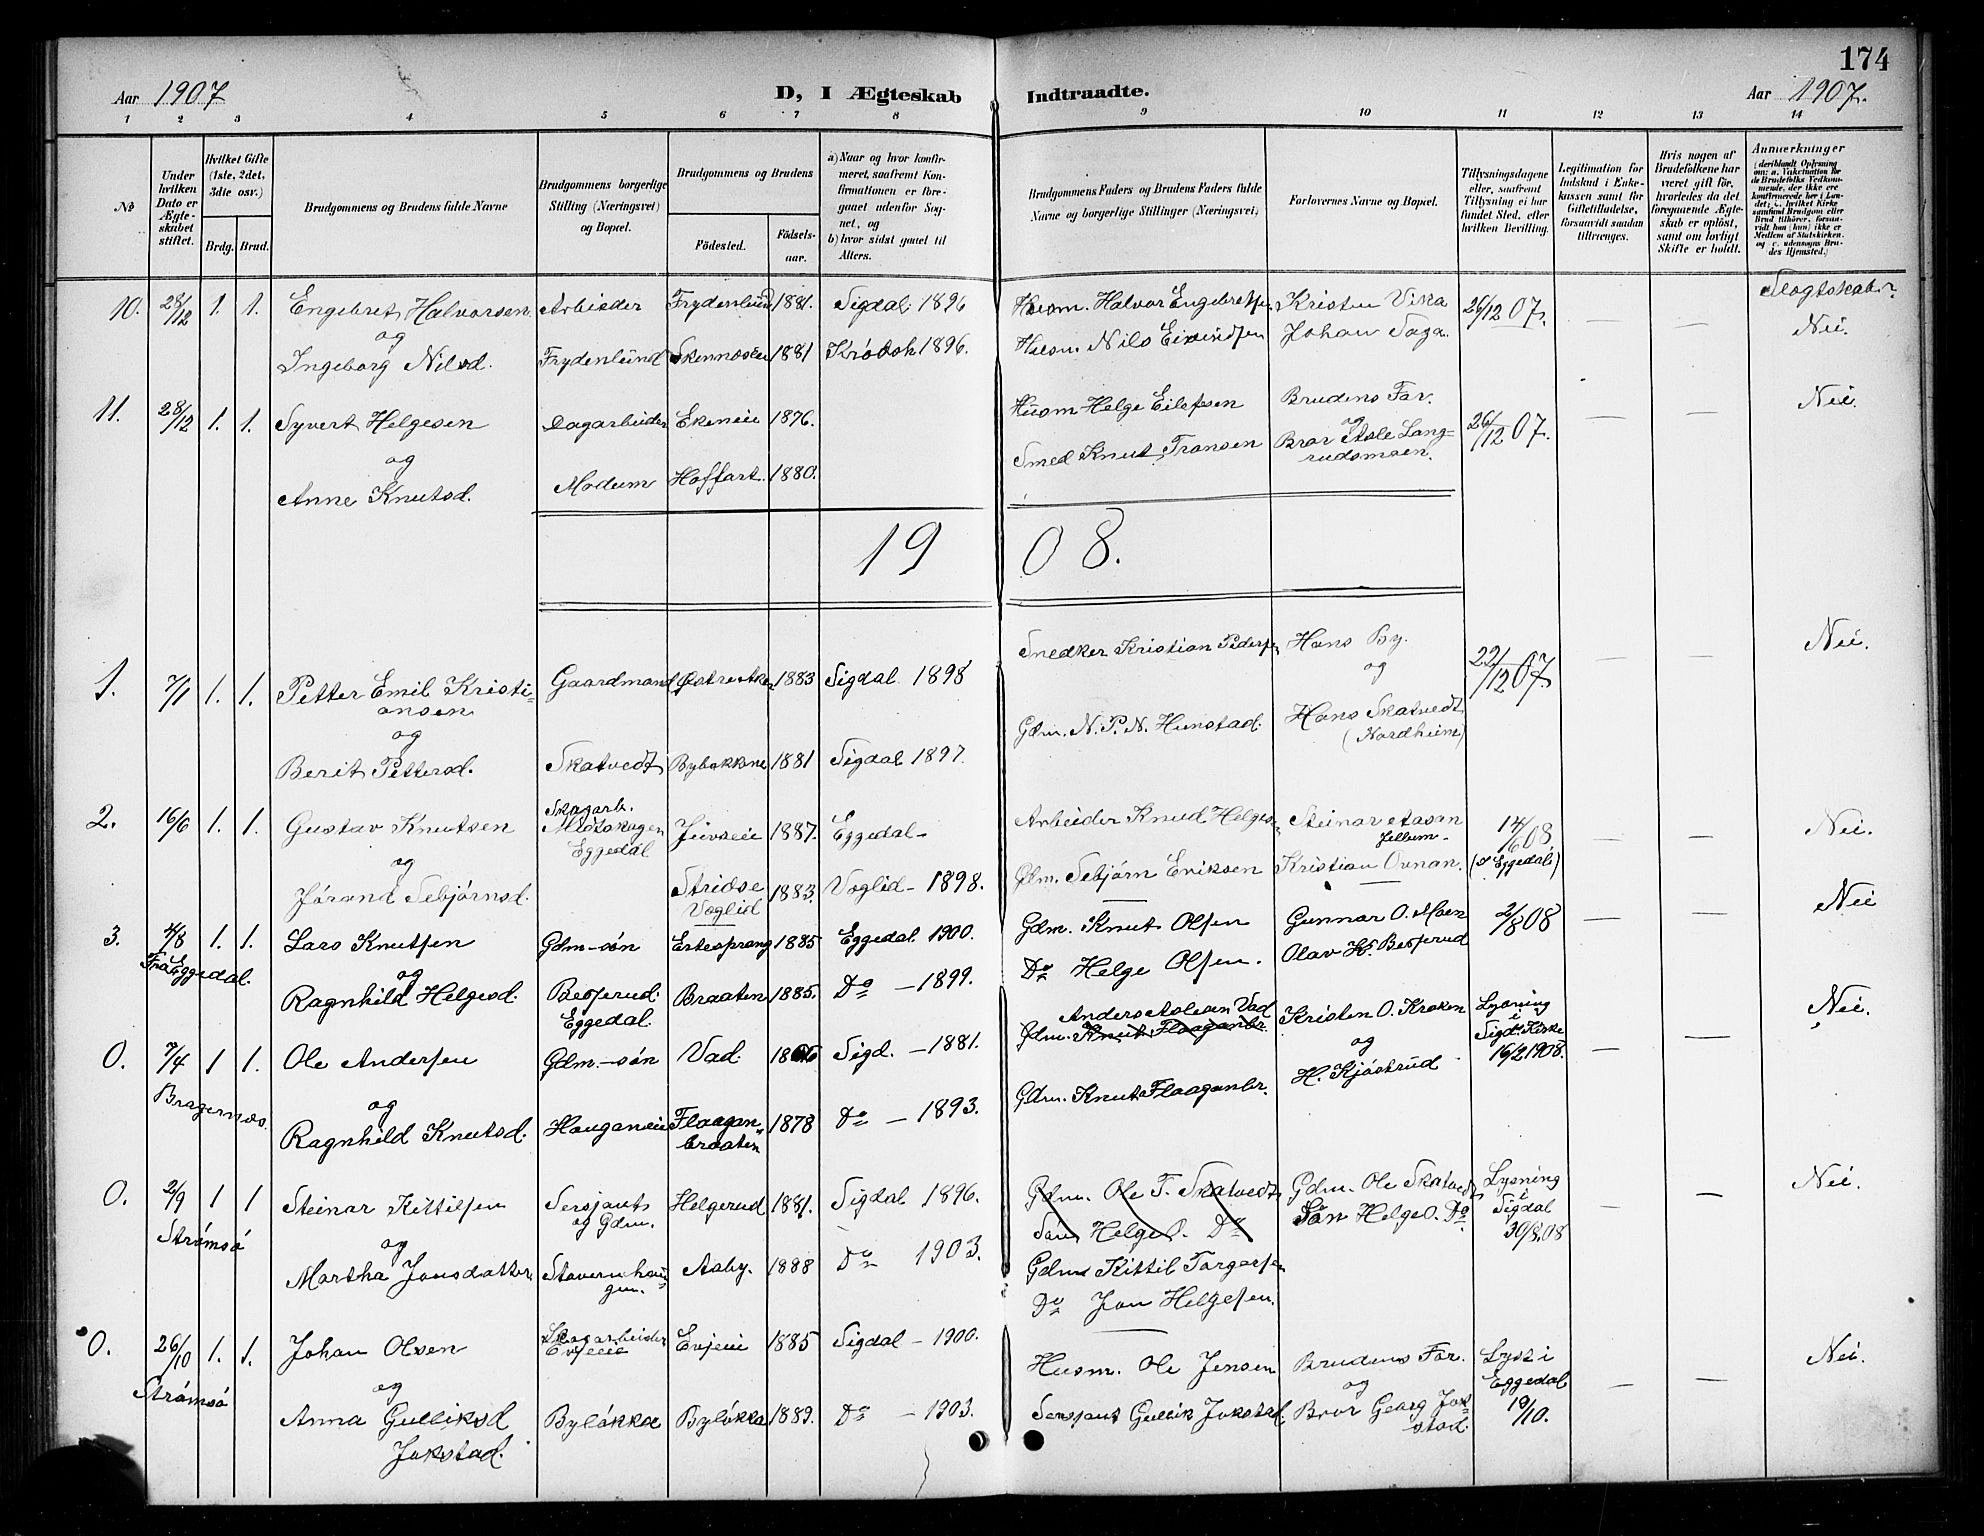 174
Aar 1907
D, I Ægteskab Indtraadte.
Aar 1907.
1 2 3 4 5 6 7 8 9 10 11 12 13 14
No
Under hvilken Dato er Ægteskabet stiftet.
Hvilket Gifte (1ste, 2det, 3die osv.)
Brdg. Brud.
Brudgommens og Brudens fulde Navne
Brudgommens borgerlige Stilling (Næringsvei) og Bopæl.
Brudgommens og Brudens
Fødested.
Fødselsaar.
a) Naar og hvor konfirmeret, saafremt Konfirmationen er foregaaet udenfor Sognet, og
b) hvor sidst gaaet til Alters.
Brudgommens Faders og Brudens Faders fulde Navne og borgerlige Stillinger (Næringsvei)
Forlovernes Navne og Bopæl.
Tillysningsdagene eller, saafremt Tillysning ei har fundet Sted, efter hvilken Bevilling.
Legitimation for Indskud i Enkekassen samt for Giftetilladelse, forsaavidt saadan tiltrænges.
Hvis nogen af Brudefolkene har været gift før, hvorledes da det foregaaende Ægteskab er opløst, samt om lovligt Skifte er holdt.
Anmærkninger
Slægtskab?
10. 28/12 1. 1. Engebret Halvorsen Arbeider Frydenlund 1881. Sigdal 1896 Husm. Halvor Engebretsen Kristen Vika 26/12 07. — — Nei.
og
Ingeborg Nilsd. Frydenlund Skennæseie 1881 Krødsh 1896. Husm. Nils Eivindsen Johan Saga.
11. 28/12 1. 1. Syvert Helgesen Dagarbeider Ekeneie 1876. Husm Helge Eilefsen Brudens Far. 26/12 07. — — Nei.
og og
Anne Knutsd. Modum Hoffart. 1880. Smed Knut Transen Bror Asle Langrudsmoen.
1908.
1. 7/1 1. 1. Petter Emil Kristiansen Gaardmand 1883 Sigdal 1898 Snedker Kristian Pedersen Hans By. 22/12 07. — — Nei.
og og
Berit Pettersd. Skatvedt Bybakkene 1881 Sigdal 1897. Gdm. N. P. N. Hunstad. Hans Skatvedt (Nordheim)
2. 16/6 1. 1. Gustav Knutsen Skogarb. Eggedal 1887. Eggedal — Arbeider Knud Helges. Steinar 14/6 08 (i Eggedal) — — Nei.
og
Jørand Sebjørnsd. Stridse Voglid 1883. Voglid — 1898. Gdm. Sebjørn Eriksen Kristian Ovnan.
3. 4/8 1. 1. Lars Knutsen Gdm-søn Ertesprang 1885 Eggedal 1900. Gdm. Knut Olsen Gunnar O. Moen 2/8 08 — — Nei
Fra Eggedal. og
Ragnhild Helgesd. Besserud. Eggedal. Braaten 1885. Do — 1899. Do Helge Olsen. Olav H. Besserud
0. 7/4 1 1. Ole Andersen Gdm.-søn Vad. Sigd. — 1881. Anders Aslesen Vad Gdm. Knut Flaaganbr. Kristen O. Kroken Lysning i Sigd. Kirke 16/2 1908. — — Nei.
Bragernæs. og og
Ragnhild Knutsd. Hauganeie Flaaganbraaten 1878 Do — 1893. Gdm. Knut Flaaganbr. H. Kjøstrud
0. 2/9 1 1 Steinar Kittilsen Sersjant og Gdm. Helgerud 1881. Sigdal 1896. Gdm. Ole T. Skatvedt Gdm. Ole Skatvedt Lysning i Sigdal 30/8.08 — — Nei.
Strømsø Søn Helge O. Do Søn Helge O. Do.
og
Martha Jonsdatter Stavernhaugen. Aaby. 1888 Do 1903. Gdm Kittil Torgersen
Do Jon Helgesen.
0. 26/10 1. 1. Johan Olsen Skogarbeider Evjeeie Evjeie 1885 Sigdal — 1900. Husm. Ole Jensen Brudens Far. Lyst i Eggedal 19/10. — — Nei.
Strømsø og og
Anna Gulliksd Jokstad. Byløkka Byløkka 1889. Do — 1903. Sersjant Gullik Jokstad. Bror Georg Jokstad.